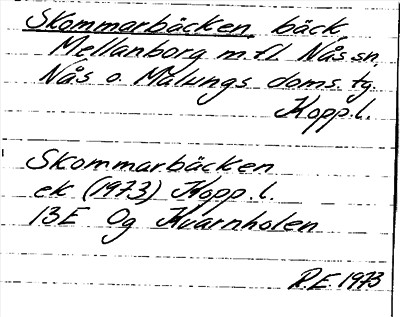 Skommarbäcken, bäck,
Mellanborg m.fl. Nås sn.
Nås o. Malungs doms. tg.
Kopp. l.
Skommarbäcken
ek (1973) Kopp. l.
13E 0g Kvarnholen
R.E. 1973